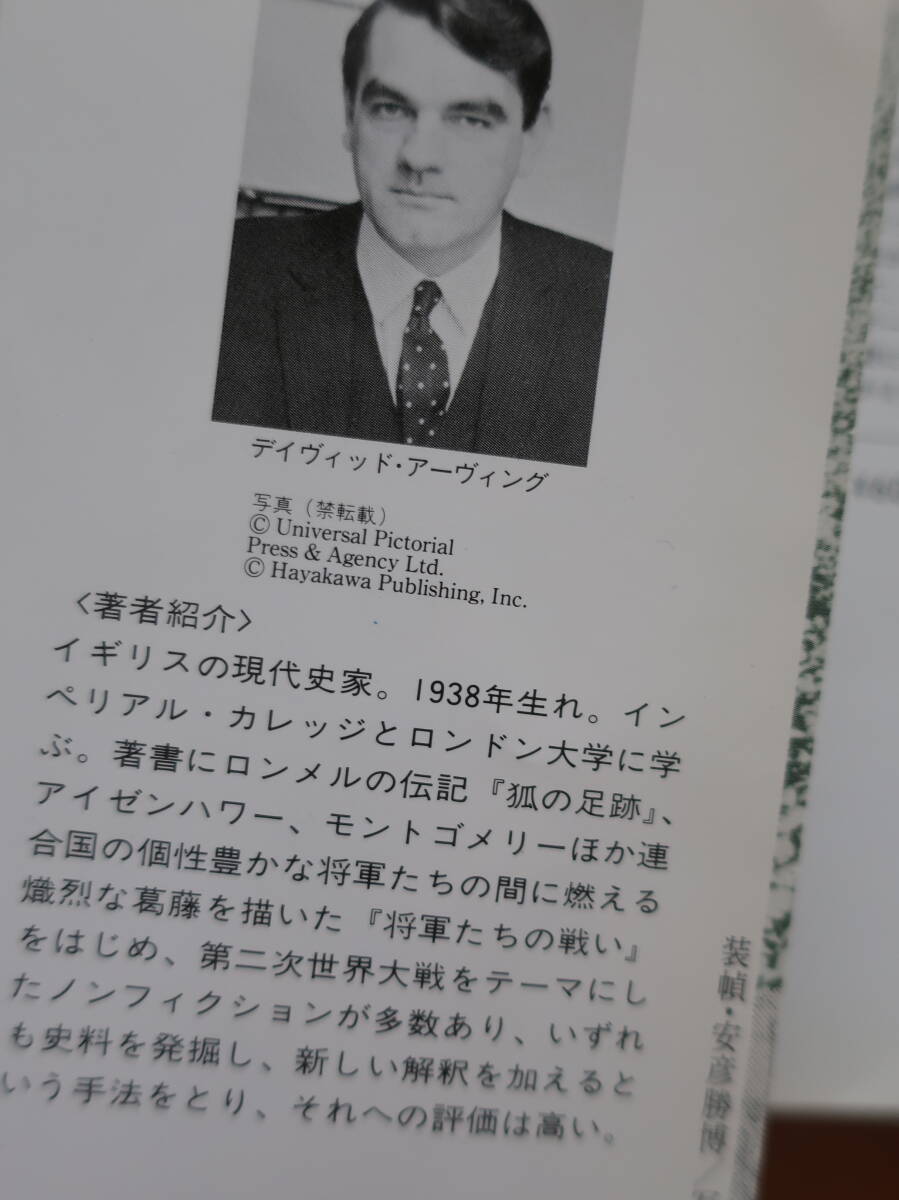 デイヴィッド・アーヴィング
写真（禁転載）
© Universal Pictorial
Press & Agency Ltd.
© Hayakawa Publishing, Inc.
〈著者紹介〉
イギリスの現代史家。1938年生れ。イン
ペリアル・カレッジとロンドン大学に学
ぶ。著書にロンメルの伝記『狐の足跡』、
アイゼンハワー、モントゴメリーほか連
合国の個性豊かな将軍たちの間に燃える
熾烈な葛藤を描いた『将軍たちの戦い』
をはじめ、第二次世界大戦をテーマにし
たノンフィクションが多数あり、いずれ
も史料を発掘し、新しい解釈を加えると
いう手法をとり、それへの評価は高い。
装幀・安彦勝博／